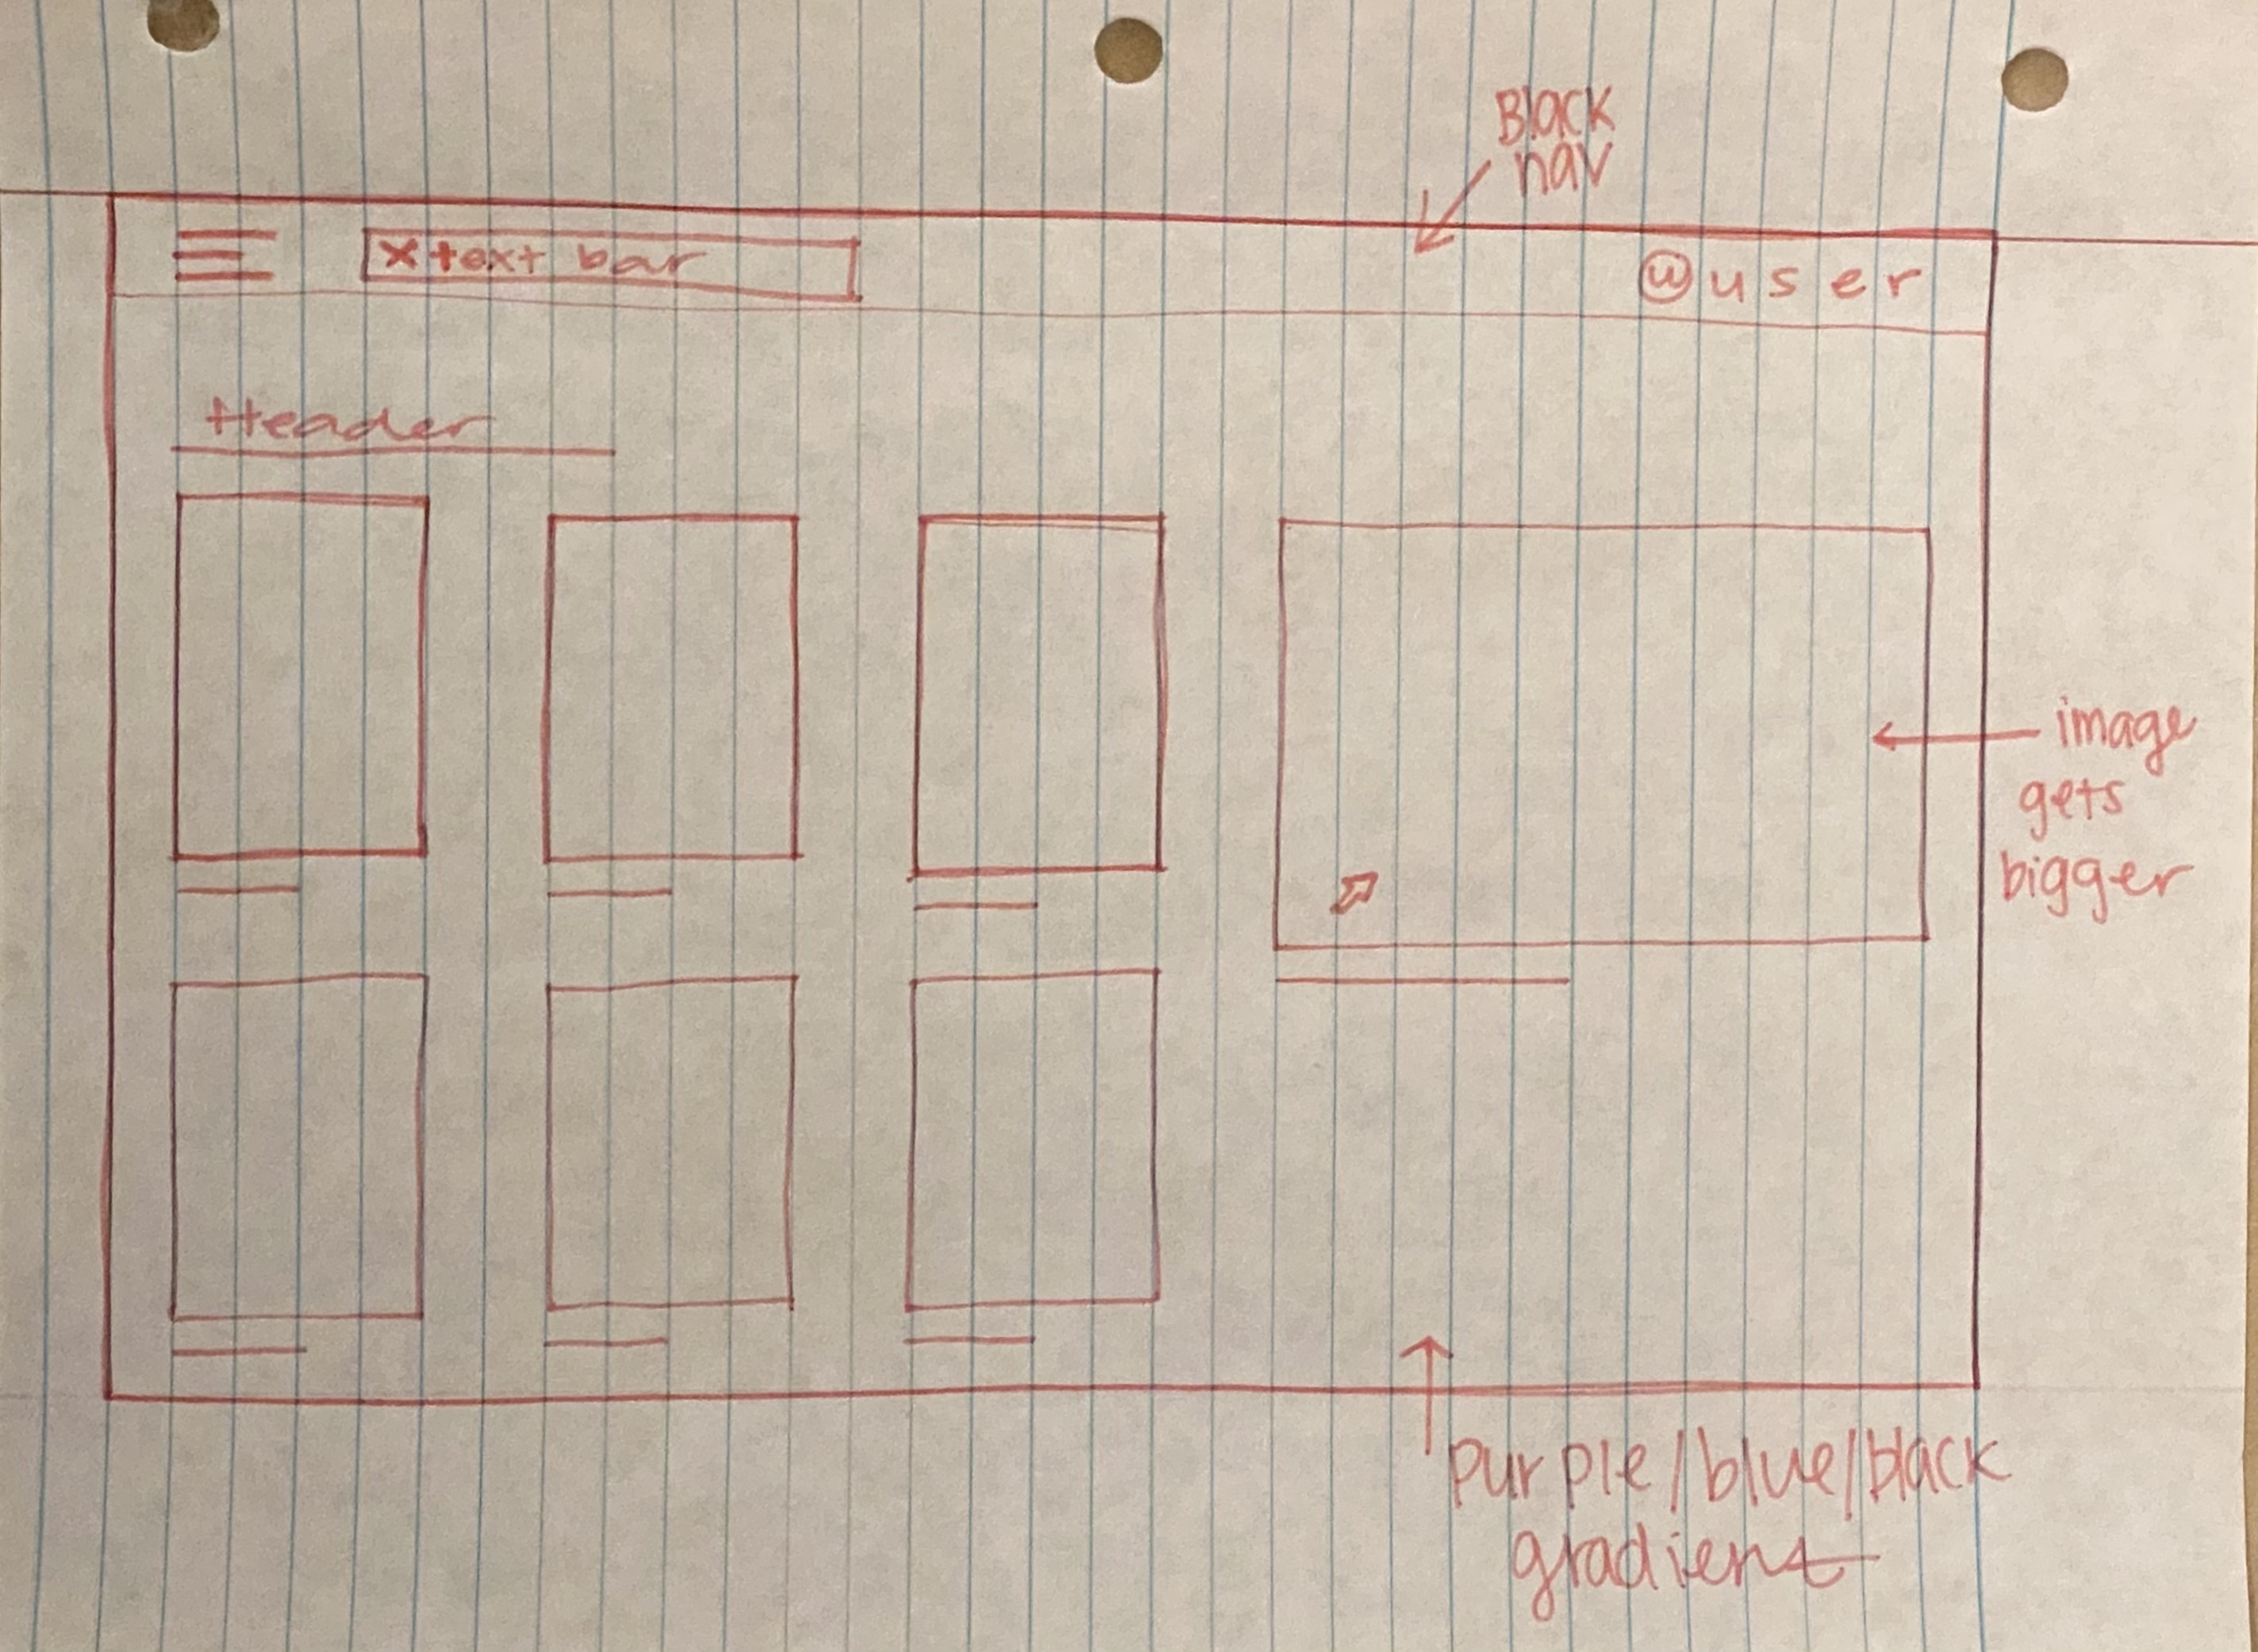 Black
nav
x text bar
@user
Header
image
gets
bigger
purple/blue/black
gradient